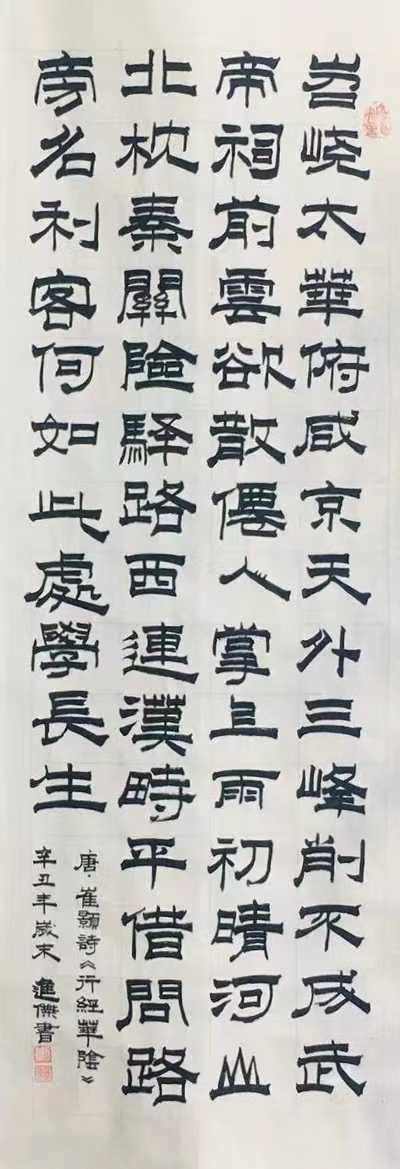 岧峣太華俯咸京天外三峰削不成武
帝祠前雲欲散僊人掌上雨初晴河山
北枕秦關險驛路西連漢畤平借問路
旁名利客何如此處學長生
唐·崔顥詩《行經華陰》
辛丑年歲末進傑書